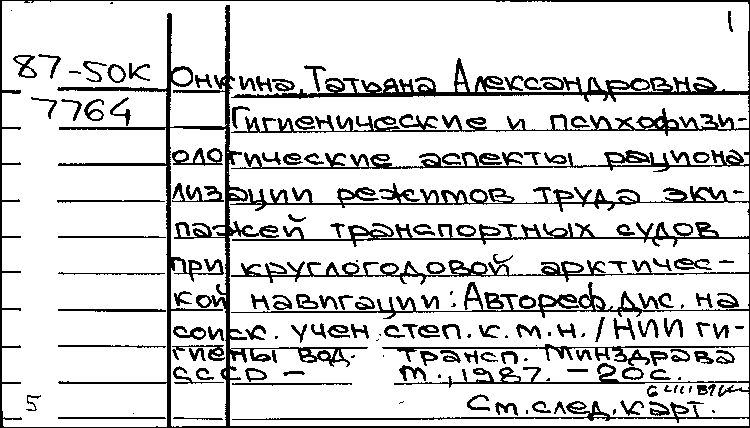 1
87-50К Онкина, Татьяна Александровна.
7764 Гигиенические и психофизи-
ологические аспекты рациона
лизации режимов труда эки-
пажей транспортных судов
при круглогодовой арктичес-
кой навигации: Автореф. дис. на
соиск. учен. степ. к. м. н. / НИИ ги-
гиены вод. трансп. Минздрава
СССР - М., 1987. - 20 с.
5 См. след. карт.